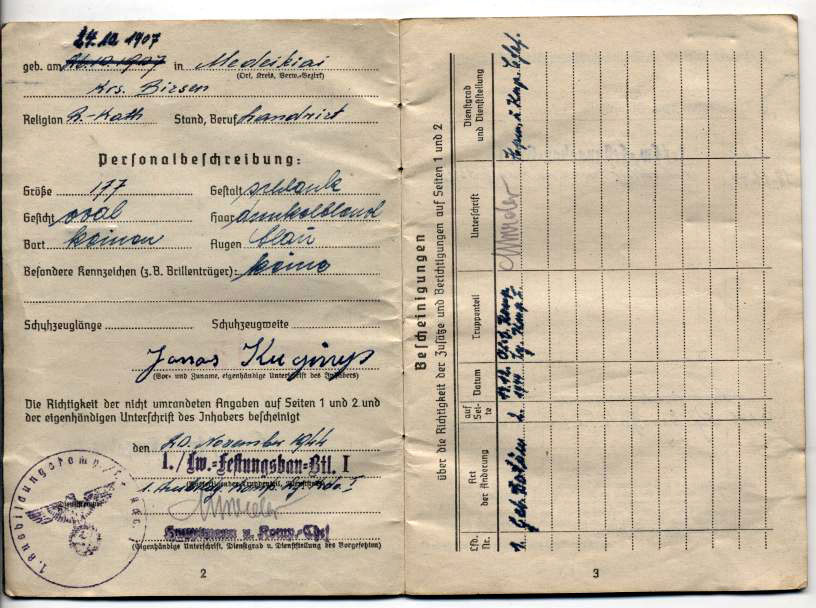 24.10 1907
geb. am 26.10.1907 in Medeikiai
(Ort, Kreis, Verw.-Bezirk)
Krs. Birsen
Religion R.-Kath Stand, Beruf Landwirt
Personalbeschreibung:
Größe 177 Gestalt schlank
Gesicht oval Haar dunkelblond
Bart keinen Augen blau
Besondere Kennzeichen (z. B. Brillenträger): keine
Schuhzeuglänge Schuhzeugweite
Jonas
(Vor- und Zuname, eigenhändige Unterschrift des Inhabers)
Die Richtigkeit der nicht umrandeten Angaben auf Seiten 1 und 2 und
der eigenhändigen Unterschrift des Inhabers bescheinigt
den 20. November 1944
1./Lw.-Festungsbau-Btl. I
1. Ausbildungskomp.
Hauptmann u. Komp.-Chef
(Eigenhändige Unterschrift, Dienstgrad u. Dienststellung des Vorgesetzten)
2
Bescheinigungen
über die Richtigkeit der Zusätze und Berichtigungen auf Seiten 1 und 2
Lfd. Nr.
Art der Änderung
auf Seite
Datum
Truppenteil
Unterschrift
Dienstgrad und Dienststellung
1. Geb. Datum 2. 17.12. 1944 Komp. Chef.
3